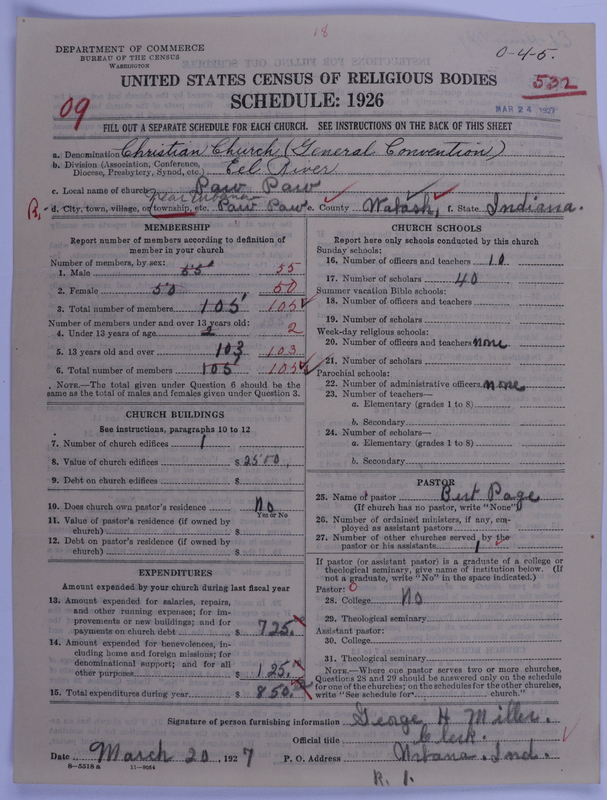 18
DEPARTMENT OF COMMERCE
BUREAU OF THE CENSUS
WASHINGTON
0-4-5.
UNITED STATES CENSUS OF RELIGIOUS BODIES
532
SCHEDULE: 1926
MAR 24 1927
09
FILL OUT A SEPARATE SCHEDULE FOR EACH CHURCH. SEE INSTRUCTIONS ON THE BACK OF THIS SHEET
a. Denomination Christian Church (General Convention)
b. Division (Association, Conference, Diocese, Presbytery, Synod, etc.) Eel River
c. Local name of church Paw Paw
near Urbana
R. d. City, town, village, or township, etc. Paw Paw e. County Wabash, f. State Indiana.
MEMBERSHIP
Report number of members according to definition of
member in your church
Number of members, by sex:
1. Male 55 55
2. Female 50 50
3. Total number of members 105 105
Number of members under and over 13 years old:
4. Under 13 years of age 2 2
5. 13 years old and over 103 103
6. Total number of members 105 105
NOTE.—The total given under Question 6 should be the
same as the total of males and females given under Question 3.
CHURCH BUILDINGS
See instructions, paragraphs 10 to 12
7. Number of church edifices 1
8. Value of church edifices $ 2500,
9. Debt on church edifices $
10. Does church own pastor's residence No
Yes or No
11. Value of pastor's residence (if owned by
church) $
12. Debt on pastor's residence (if owned by
church) $
EXPENDITURES
Amount expended by your church during last fiscal year
13. Amount expended for salaries, repairs,
and other running expenses; for im-
provements or new buildings; and for
payments on church debt $ 725.
14. Amount expended for benevolences, in-
cluding home and foreign missions; for
denominational support; and for all
other purposes $ 125.
15. Total expenditures during year $ 850.
CHURCH SCHOOLS
Report here only schools conducted by this church
Sunday schools:
16. Number of officers and teachers 10
17. Number of scholars 40
Summer vacation Bible schools:
18. Number of officers and teachers
19. Number of scholars
Week-day religious schools:
20. Number of officers and teachers none
21. Number of scholars
Parochial schools:
22. Number of administrative officers none
23. Number of teachers—
a. Elementary (grades 1 to 8)
b. Secondary
24. Number of scholars—
a. Elementary (grades 1 to 8)
b. Secondary
PASTOR
25. Name of pastor Bert Page
(If church has no pastor, write "None")
26. Number of ordained ministers, if any, em-
ployed as assistant pastors
27. Number of other churches served by the
pastor or his assistants 1
If pastor (or assistant pastor) is a graduate of a college or
theological seminary, give name of institution below. (If
not a graduate, write "No" in the space indicated.)
Pastor: 0
28. College No
29. Theological seminary
Assistant pastor:
30. College
31. Theological seminary
NOTE.—Where one pastor serves two or more churches,
Questions 28 and 29 should be answered only on the schedule
for one of the churches; on the schedules for the other churches,
write "See schedule for church."
Signature of person furnishing information George H Miller.
Official title Clerk.
Date March 20, 1927 P. O. Address Urbana. Ind.
8—5518 a 11—9054
R. 1.